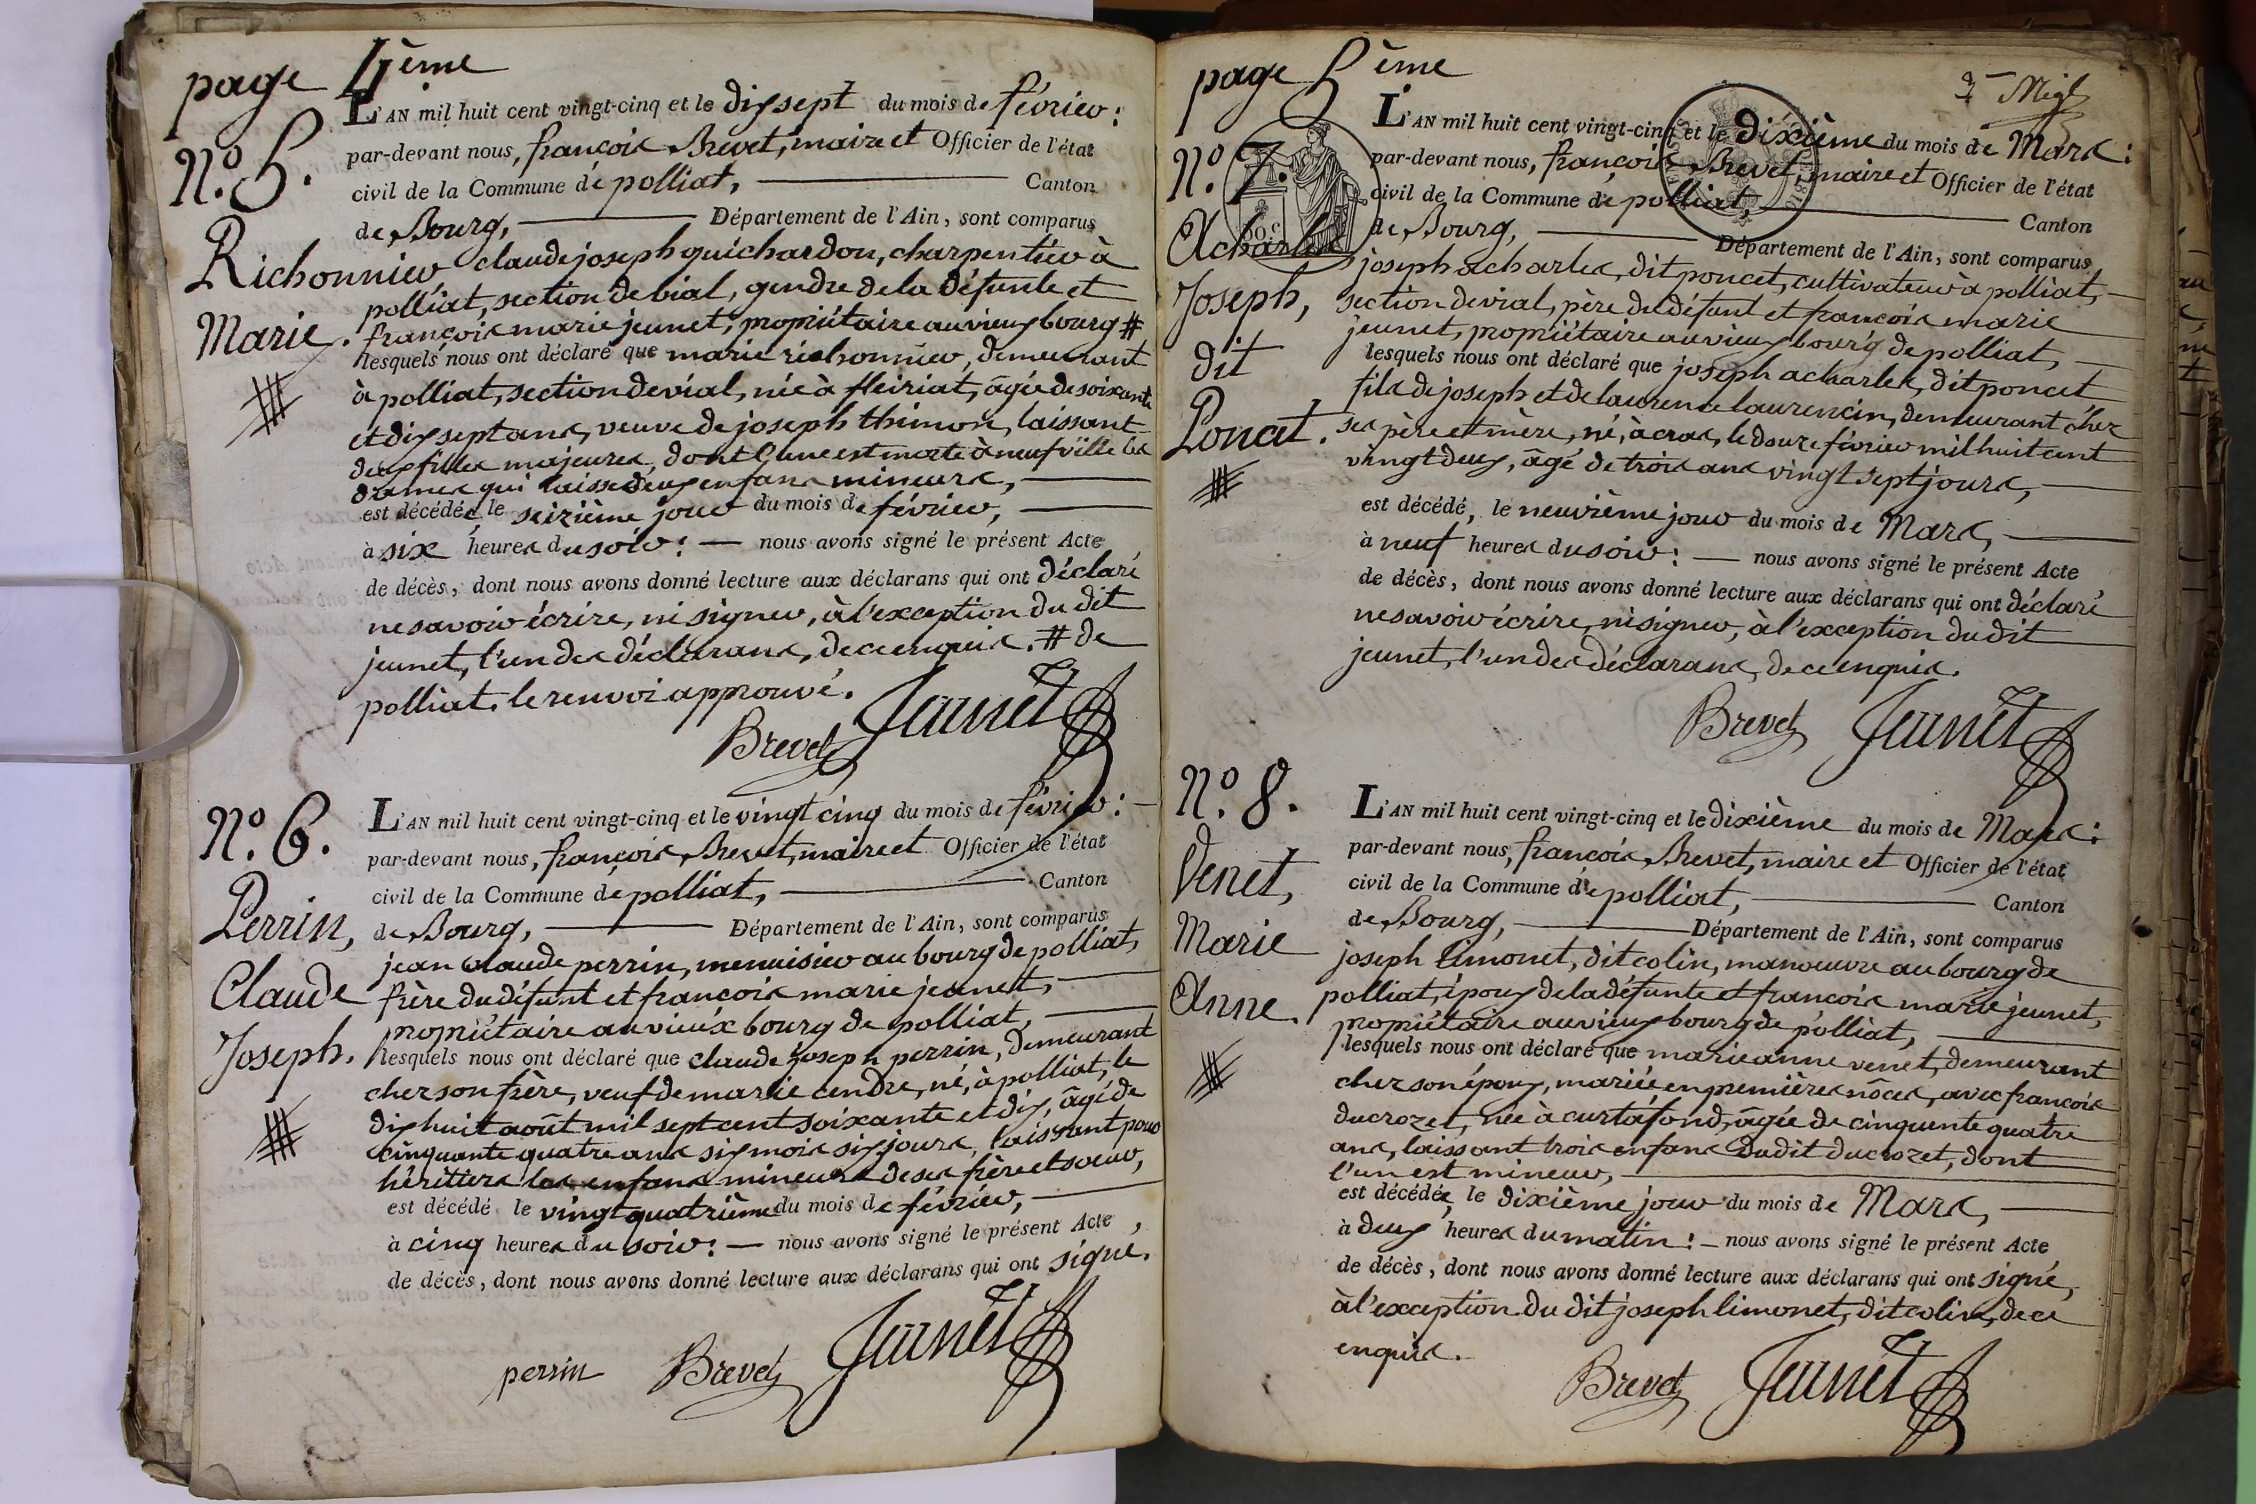 page 4ème
N.º 5.
Richonnier
Marie.
L'AN mil huit cent vingt-cinq et le dix sept du mois de février :
par-devant nous, françois Brevet, maire et Officier de l'état
civil de la Commune de polliat, Canton
de Bourg, Département de l'Ain, sont comparus
claude joseph guichardon, charpentier à
polliat, section de vial, gendre de la défunte et
françois marie jeunet, propriétaire au vieux bourg #
lesquels nous ont déclaré que marie richonnier, demeurant
à polliat, section de vial, née à fleiriat, âgée de soixante
et dix sept ans, veuve de joseph thimon, laissant
deux filles majeures, dont l'une est morte à neufville les
dames qui laisse deux enfans mineurs,
est décédée, le seizième jour du mois de février,
à six heures du soir : nous avons signé le présent Acte
de décès, dont nous avons donné lecture aux déclarans qui ont déclaré
ne savoir écrire, ni signer, à l'exception du dit
jeunet, l'un des déclarans, de ce enquis. # de
polliat. le renvoi approuvé.
Brevet Jeunet
N.º 6.
Perrin,
Claude
Joseph.
L'AN mil huit cent vingt-cinq et le vingt cinq du mois de février :
par-devant nous, françois Brevet, maire et Officier de l'état
civil de la Commune de polliat, Canton
de Bourg, Département de l'Ain, sont comparus
jean claude perrin, menuisier au bourg de polliat,
frère du défunt et françois marie jeunet,
propriétaire au vieux bourg de polliat,
lesquels nous ont déclaré que claude joseph perrin, demeurant
chez son frère, veuf de marie cendre, né, à polliat, le
dix huit août mil sept cent soixante et dix, âgé de
cinquante quatre ans six mois six jours, laissant pour
héritiers les enfans mineurs de ses frère et sœur,
est décédé le vingt quatrième du mois de février,
à cinq heures du soir : nous avons signé le présent Acte,
de décès, dont nous avons donné lecture aux déclarans qui ont signé.
perrin Brevet Jeunet
page 5ème
N.º 7.
Acharles
Joseph,
dit
Poncet.
L'AN mil huit cent vingt-cinq et le dixième du mois de Mars :
par-devant nous, françois Brevet, maire et Officier de l'état
civil de la Commune de polliat, Canton
de Bourg, Département de l'Ain, sont comparus
joseph acharles, dit poncet, cultivateur à polliat,
section de vial, père du défunt et françois marie
jeunet, propriétaire au vieux bourg de polliat,
lesquels nous ont déclaré que joseph acharles, dit poncet
fils de joseph et de laurence laurencin, demeurant chez
ses père et mère, né, à cras, le douze février mil huit cent
vingt deux, âgé de trois ans vingt sept jours,
est décédé, le neuvième jour du mois de Mars,
à neuf heures du soir : nous avons signé le présent Acte
de décès, dont nous avons donné lecture aux déclarans qui ont déclaré
ne savoir écrire, ni signer, à l'exception du dit
jeunet, l'un des déclarans, de ce enquis.
Brevet Jeunet
N.º 8.
Venet,
Marie
Anne.
L'AN mil huit cent vingt-cinq et le dixième du mois de Mars :
par-devant nous, françois Brevet, maire et Officier de l'état
civil de la Commune de polliat, Canton
de Bourg, Département de l'Ain, sont comparus
joseph limonet, dit colin, manoeuvre au bourg de
polliat, époux de la défunte et françois marie jeunet,
propriétaire au vieux bourg de polliat,
lesquels nous ont déclaré que marie anne venet, demeurant
chez son époux, mariée en premières nôces, avec françois
ducrozet, née à curtafond, âgée de cinquente quatre
ans, laissant trois enfans du dit ducrozet, dont
l'un est mineur,
est décédée, le dixième jour du mois de Mars,
à deux heures du matin : nous avons signé le présent Acte
de décès, dont nous avons donné lecture aux déclarans qui ont signé,
à l'exception du dit joseph limonet, dit colin, de ce
enquis.
Brevet Jeunet